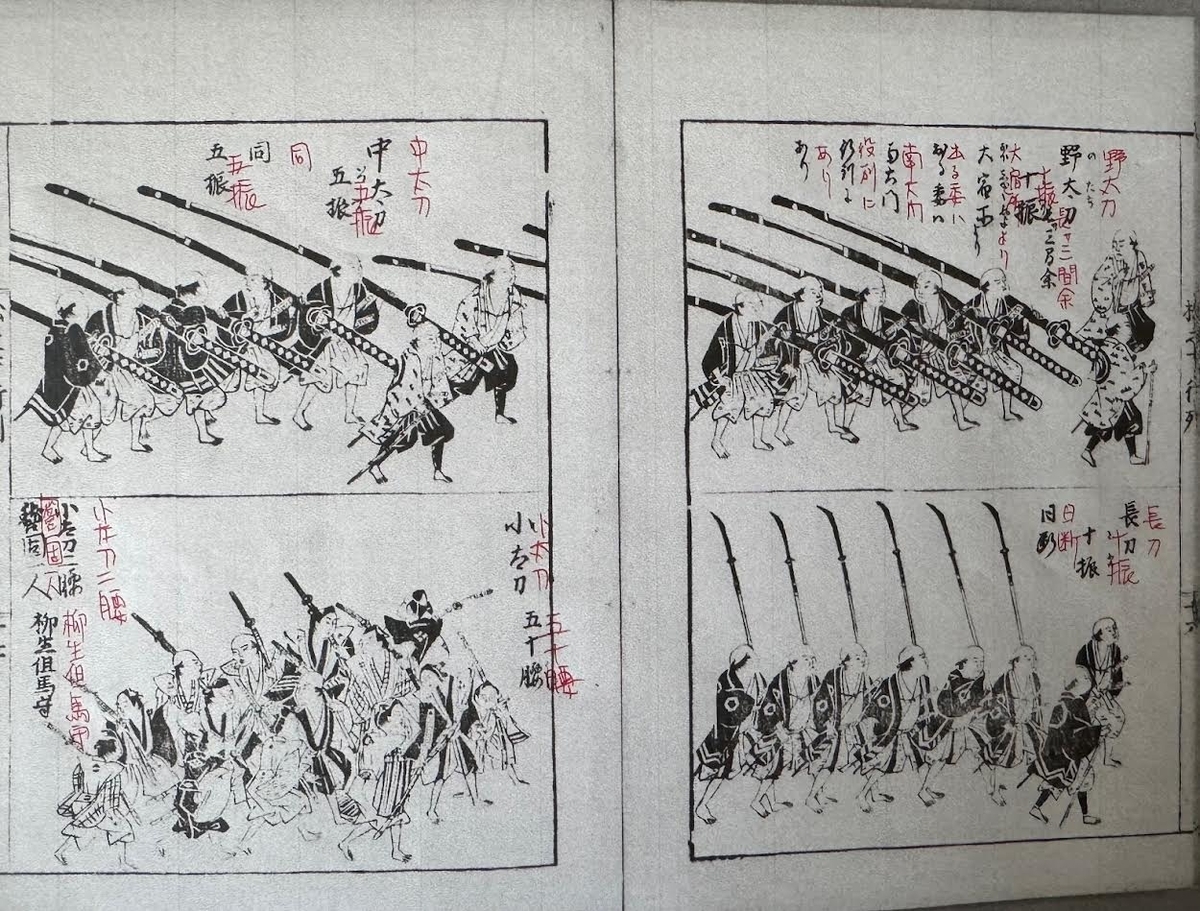 野太刀
のたち
野太刀
十振
長サ三間余
大宿所より
大宿所より
出る委ハ
出る委ハ
南大門
南大門
役別に
行列に
あり
あり
長刀
長刀
十振
十振
日断
日断
中太刀
中太刀
五振
五振
同
同
五振
五振
小太刀
小太刀
五十腰
五十腰
小太刀二腰
小太刀二腰
警固一人
警固一人
柳生但馬守
柳生但馬守